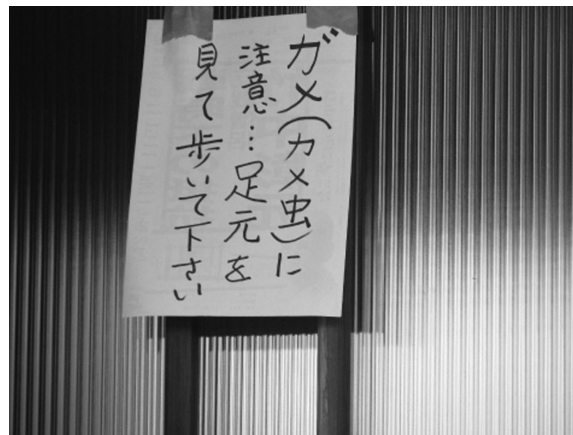 ガメ(カメ虫)に
注意…足元を
見て歩いて下さい